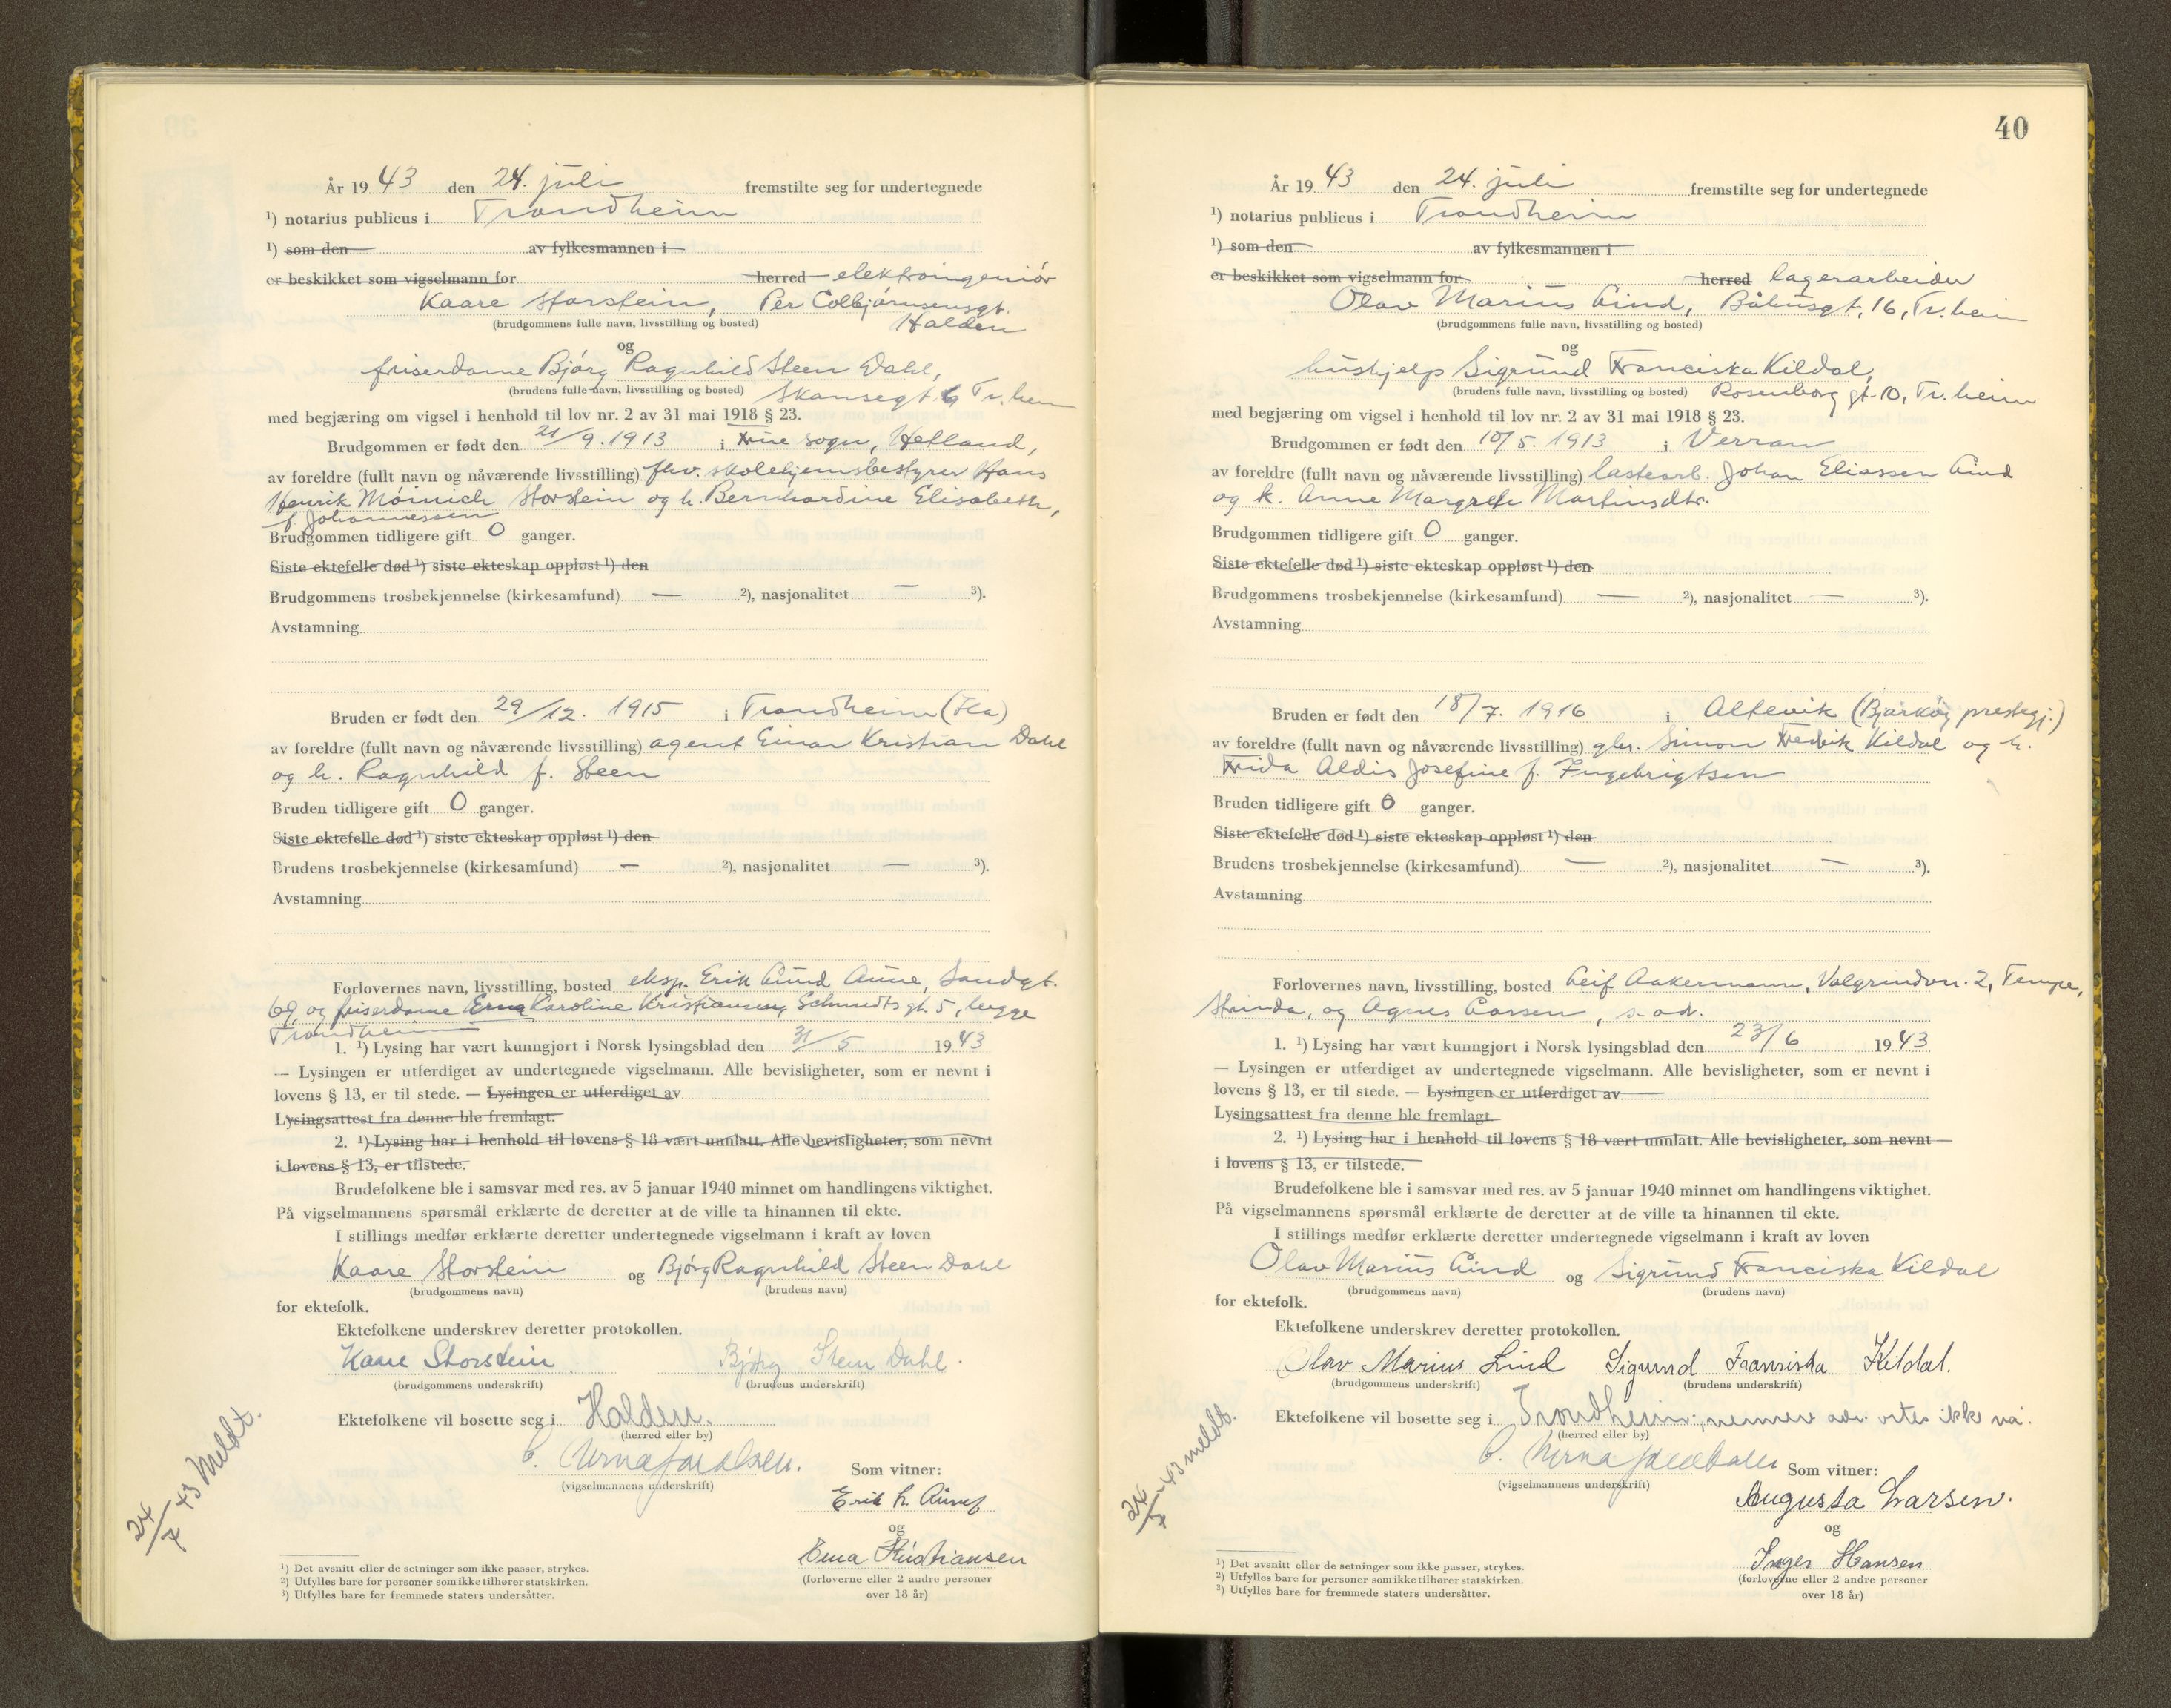 År 19 43 den 24. juli fremstilte seg for undertegnede
¹) notarius publicus i Trondheim
¹) som den av fylkesmannen i
er beskikket som vigselmann for herred elektroingeniör
Kaare Storstein, Per Colbjørnsensgt.
(brudgommens fulle navn, livsstilling og bosted) Halden
og
friserdame Bjørg Ragnhild Steen Dahl,
(brudens fulle navn, livsstilling og bosted) Skansegt. 6 Tr.heim
med begjæring om vigsel i henhold til lov nr. 2 av 31 mai 1918 § 23.
Brudgommen er født den 21/9. 1913 i Frue sogn, Hetland,
av foreldre (fullt navn og nåværende livsstilling) fhv. skolehjemsbestyrer Hans
Henrik Möinich Storstein og h. Bernhardine Elisabeth,
f. Johannessen
Brudgommen tidligere gift 0 ganger.
Siste ektefelle død ¹) siste ekteskap oppløst ¹) den
Brudgommens trosbekjennelse (kirkesamfund) — ²), nasjonalitet — ³).
Avstamning
Bruden er født den 29/12. 1915 i Trondheim (Ila)
av foreldre (fullt navn og nåværende livsstilling) agent Einar Kristian Dahl
og h. Ragnhild f. Steen
Bruden tidligere gift 0 ganger.
Siste ektefelle død ¹) siste ekteskap oppløst ¹) den
Brudens trosbekjennelse (kirkesamfund) — ²), nasjonalitet — ³).
Avstamning
Forlovernes navn, livsstilling, bosted eksp. Erik Lund Aune, Sandgt.
69, og friserdame Erna Karoline Kristiansen, Schmidts gt. 5, begge
Trondheim
1. ¹) Lysing har vært kunngjort i Norsk lysingsblad den 31/5 19 43
— Lysingen er utferdiget av undertegnede vigselmann. Alle bevisligheter, som er nevnt i
lovens § 13, er til stede. — Lysingen er utferdiget av
Lysingsattest fra denne ble fremlagt.
2. ¹) Lysing har i henhold til lovens § 18 vært unnlatt. Alle bevisligheter, som nevnt
i lovens § 13, er tilstede.
Brudefolkene ble i samsvar med res. av 5 januar 1940 minnet om handlingens viktighet.
På vigselmannens spørsmål erklærte de deretter at de ville ta hinannen til ekte.
I stillings medfør erklærte deretter undertegnede vigselmann i kraft av loven
Kaare Storstein og Bjørg Ragnhild Steen Dahl
(brudgommens navn) (brudens navn)
for ektefolk.
Ektefolkene underskrev deretter protokollen.
Kaare Storstein Bjørg Steen Dahl.
(brudgommens underskrift) (brudens underskrift)
Ektefolkene vil bosette seg i Halden.
(herred eller by)
Som vitner:
(vigselmannens underskrift)
Erik L. Aune
og
Erna Kristiansen
(forloverne eller 2 andre personer
over 18 år)
24/7 43 Meldt.
¹) Det avsnitt eller de setninger som ikke passer, strykes.
²) Utfylles bare for personer som ikke tilhører statskirken.
³) Utfylles bare for fremmede staters undersåtter.
40
År 19 43 den 24. juli fremstilte seg for undertegnede
¹) notarius publicus i Trondheim
¹) som den av fylkesmannen i
er beskikket som vigselmann for herred lagerarbeider
Olav Marius Lind, Båhusgt. 16, Tr.heim
(brudgommens fulle navn, livsstilling og bosted)
og
hushjelp Sigrund Franciska Kildal,
(brudens fulle navn, livsstilling og bosted) Rosenborg gt. 10, Tr.heim
med begjæring om vigsel i henhold til lov nr. 2 av 31 mai 1918 § 23.
Brudgommen er født den 10/5. 1913 i Verran
av foreldre (fullt navn og nåværende livsstilling) lastearb. Johan Eliassen Lind
og h. Anne Margrete Martinsdtr.
Brudgommen tidligere gift 0 ganger.
Siste ektefelle død ¹) siste ekteskap oppløst ¹) den
Brudgommens trosbekjennelse (kirkesamfund) — ²), nasjonalitet — ³).
Avstamning
Bruden er født den 18/7. 1916 i Altevik (Bjarköy prestegj.)
av foreldre (fullt navn og nåværende livsstilling) gbr. Simon Fredrik Kildal og h.
Frida Aldis Josefine f. Ingebrigtsen
Bruden tidligere gift 0 ganger.
Siste ektefelle død ¹) siste ekteskap oppløst ¹) den
Brudens trosbekjennelse (kirkesamfund) — ²), nasjonalitet — ³).
Avstamning
Forlovernes navn, livsstilling, bosted Leif Aakermann, Valgrindvn. 2, Tempe,
Strinda, og Agnes Larsen, s. ad.
1. ¹) Lysing har vært kunngjort i Norsk lysingsblad den 23/6 19 43
— Lysingen er utferdiget av undertegnede vigselmann. Alle bevisligheter, som er nevnt i
lovens § 13, er til stede. — Lysingen er utferdiget av
Lysingsattest fra denne ble fremlagt
2. ¹) Lysing har i henhold til lovens § 18 vært unnlatt. Alle bevisligheter, som nevnt
i lovens § 13, er tilstede.
Brudefolkene ble i samsvar med res. av 5 januar 1940 minnet om handlingens viktighet.
På vigselmannens spørsmål erklærte de deretter at de ville ta hinannen til ekte.
I stillings medfør erklærte deretter undertegnede vigselmann i kraft av loven
Olav Marius Lind og Sigrund Franciska Kildal
(brudgommens navn) (brudens navn)
for ektefolk.
Ektefolkene underskrev deretter protokollen.
Olav Marius Lind Sigrund Fransiska Kildal.
(brudgommens underskrift) (brudens underskrift)
Ektefolkene vil bosette seg i Trondheim; nermere adr. vites ikke nå.
(herred eller by)
Som vitner:
(vigselmannens underskrift)
Augusta Larsen.
og
Inger Hansen
(forloverne eller 2 andre personer
over 18 år)
24/7 43 meldt.
¹) Det avsnitt eller de setninger som ikke passer, strykes.
²) Utfylles bare for personer som ikke tilhører statskirken.
³) Utfylles bare for fremmede staters undersåtter.